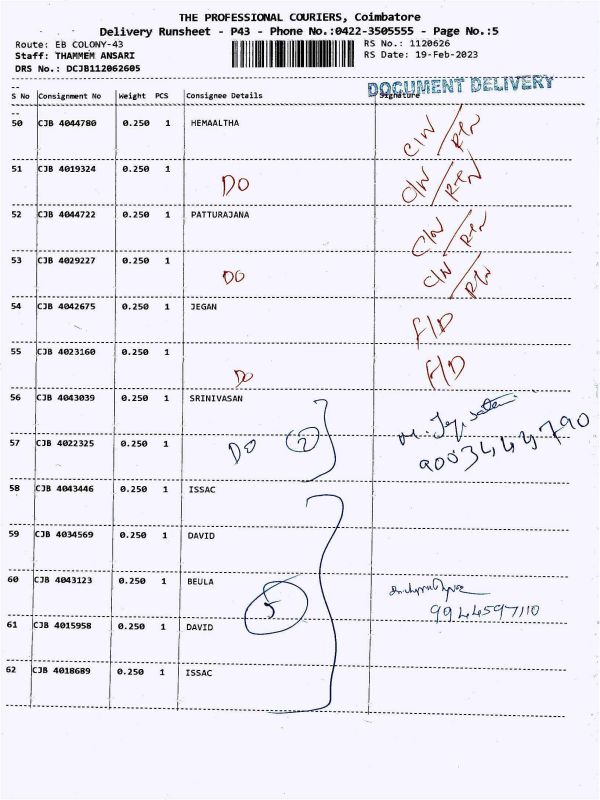 THE PROFESSIONAL COURIERS, Coimbatore
Delivery Runsheet - P43 - Phone No.:0422-3505555 - Page No.:5
Route: EB COLONY-43
RS No.: 1120626
Staff: THAMMEM ANSARI
RS Date: 19-Feb-2023
DRS No.: DCJB112062605
DOCUMENT DELIVERY
S No Consignment No Weight PCS Consignee Details Signature
50 CJB 4044780 0.250 1 HEMAALTHA C/N/RTN
51 CJB 4019324 0.250 1 DO C/N/RTN
52 CJB 4044722 0.250 1 PATTURAJANA C/N/RTN
53 CJB 4029227 0.250 1 DO C/N/RTN
54 CJB 4042675 0.250 1 JEGAN F/D
55 CJB 4023160 0.250 1 DO F/D
56 CJB 4043039 0.250 1 SRINIVASAN
57 CJB 4022325 0.250 1 DO 2
58 CJB 4043446 0.250 1 ISSAC
59 CJB 4034569 0.250 1 DAVID
60 CJB 4043123 0.250 1 BEULA 5
9944597110
61 CJB 4015958 0.250 1 DAVID
62 CJB 4018689 0.250 1 ISSAC